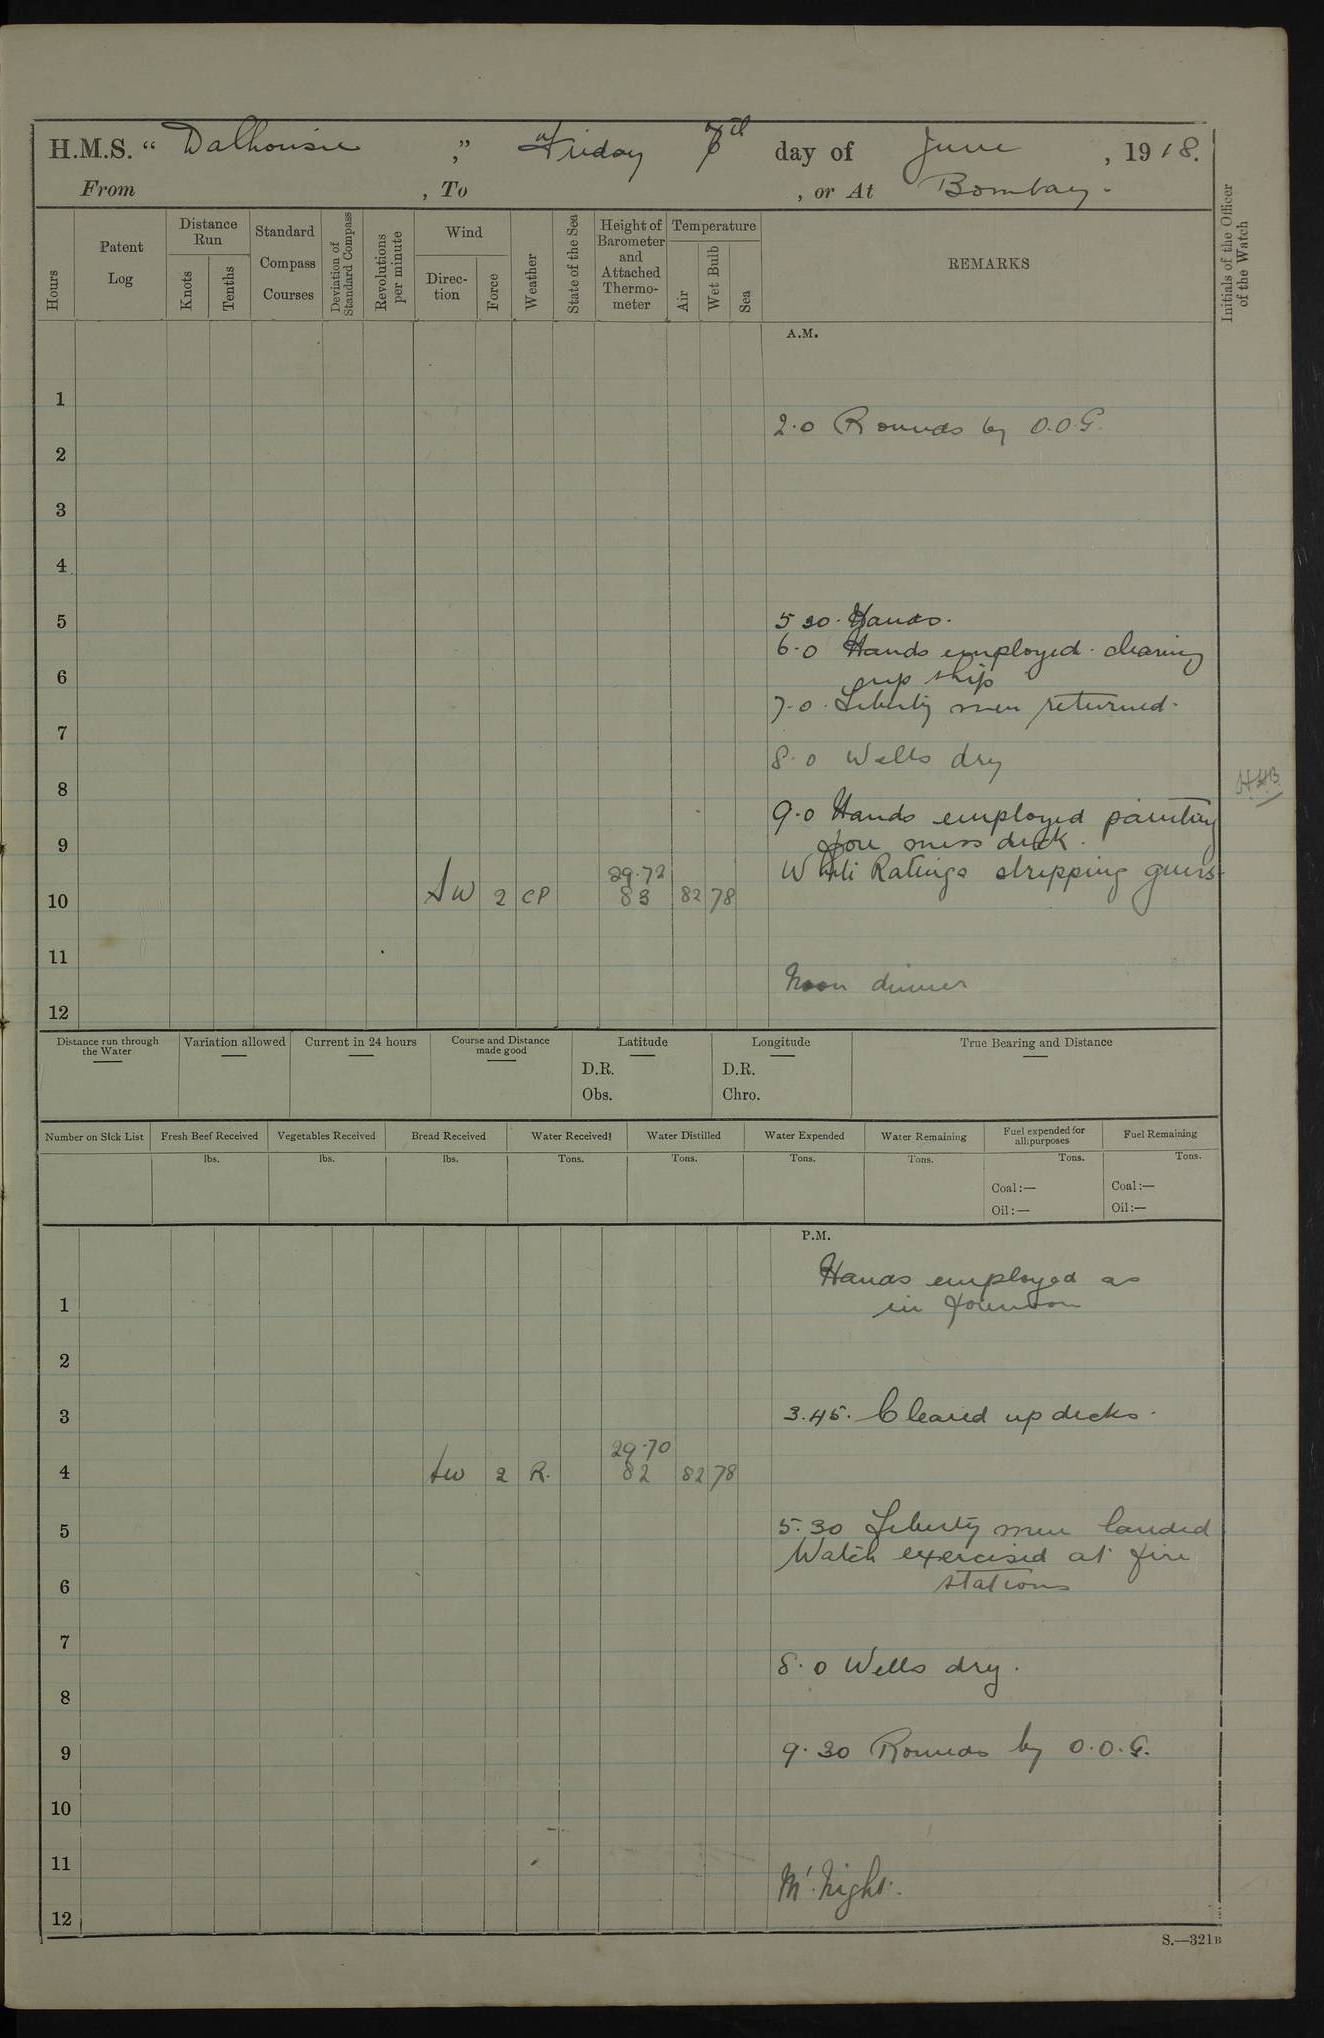 H.M.S. “ Dalhousie ,” Friday 7th day of June , 1918.
From , To , or At Bombay.
Hours
Patent Log
Distance Run
Knots
Tenths
Standard Compass Courses
Deviation of Standard Compass
Revolutions per minute
Wind
Direc-tion
Force
Weather
State of the Sea
Height of Barometer and Attached Thermo-meter
Temperature
Air
Wet Bulb
Sea
REMARKS
Initials of the Officer of the Watch
A.M.
1
2.0 Rounds by O.O.G.
2
3
4
5
5 30. Hands.
6.0 Hands employed cleaning
6
up ship
7.0. Liberty men returned.
7
8.0 Wells dry
8
HHB
9.0 Hands employed painting
9
fore mess deck.
White Ratings stripping guns.
29.72
10 SW 2 CP 83 82 78
11
Noon dinner
12
Distance run through the Water
Variation allowed
Current in 24 hours
Course and Distance made good
Latitude
D.R.
Obs.
Longitude
D.R.
Chro.
True Bearing and Distance
Number on Sick List
Fresh Beef Received
lbs.
Vegetables Received
lbs.
Bread Received
lbs.
Water Received
Tons.
Water Distilled
Tons.
Water Expended
Tons.
Water Remaining
Tons.
Fuel expended for all purposes
Tons.
Coal:—
Oil:—
Fuel Remaining
Tons.
Coal:—
Oil:—
P.M.
Hands employed as
1
in forenoon
2
3
3.45. Cleared up decks.
29.70
4 SW 2 R. 82 82 78
5
5.30 Liberty men landed
Watch exercised at fire
6
stations
7
8.0 Wells dry.
8
9
9.30 Rounds by O.O.G.
10
11
M'. Night.
12
S.—321B